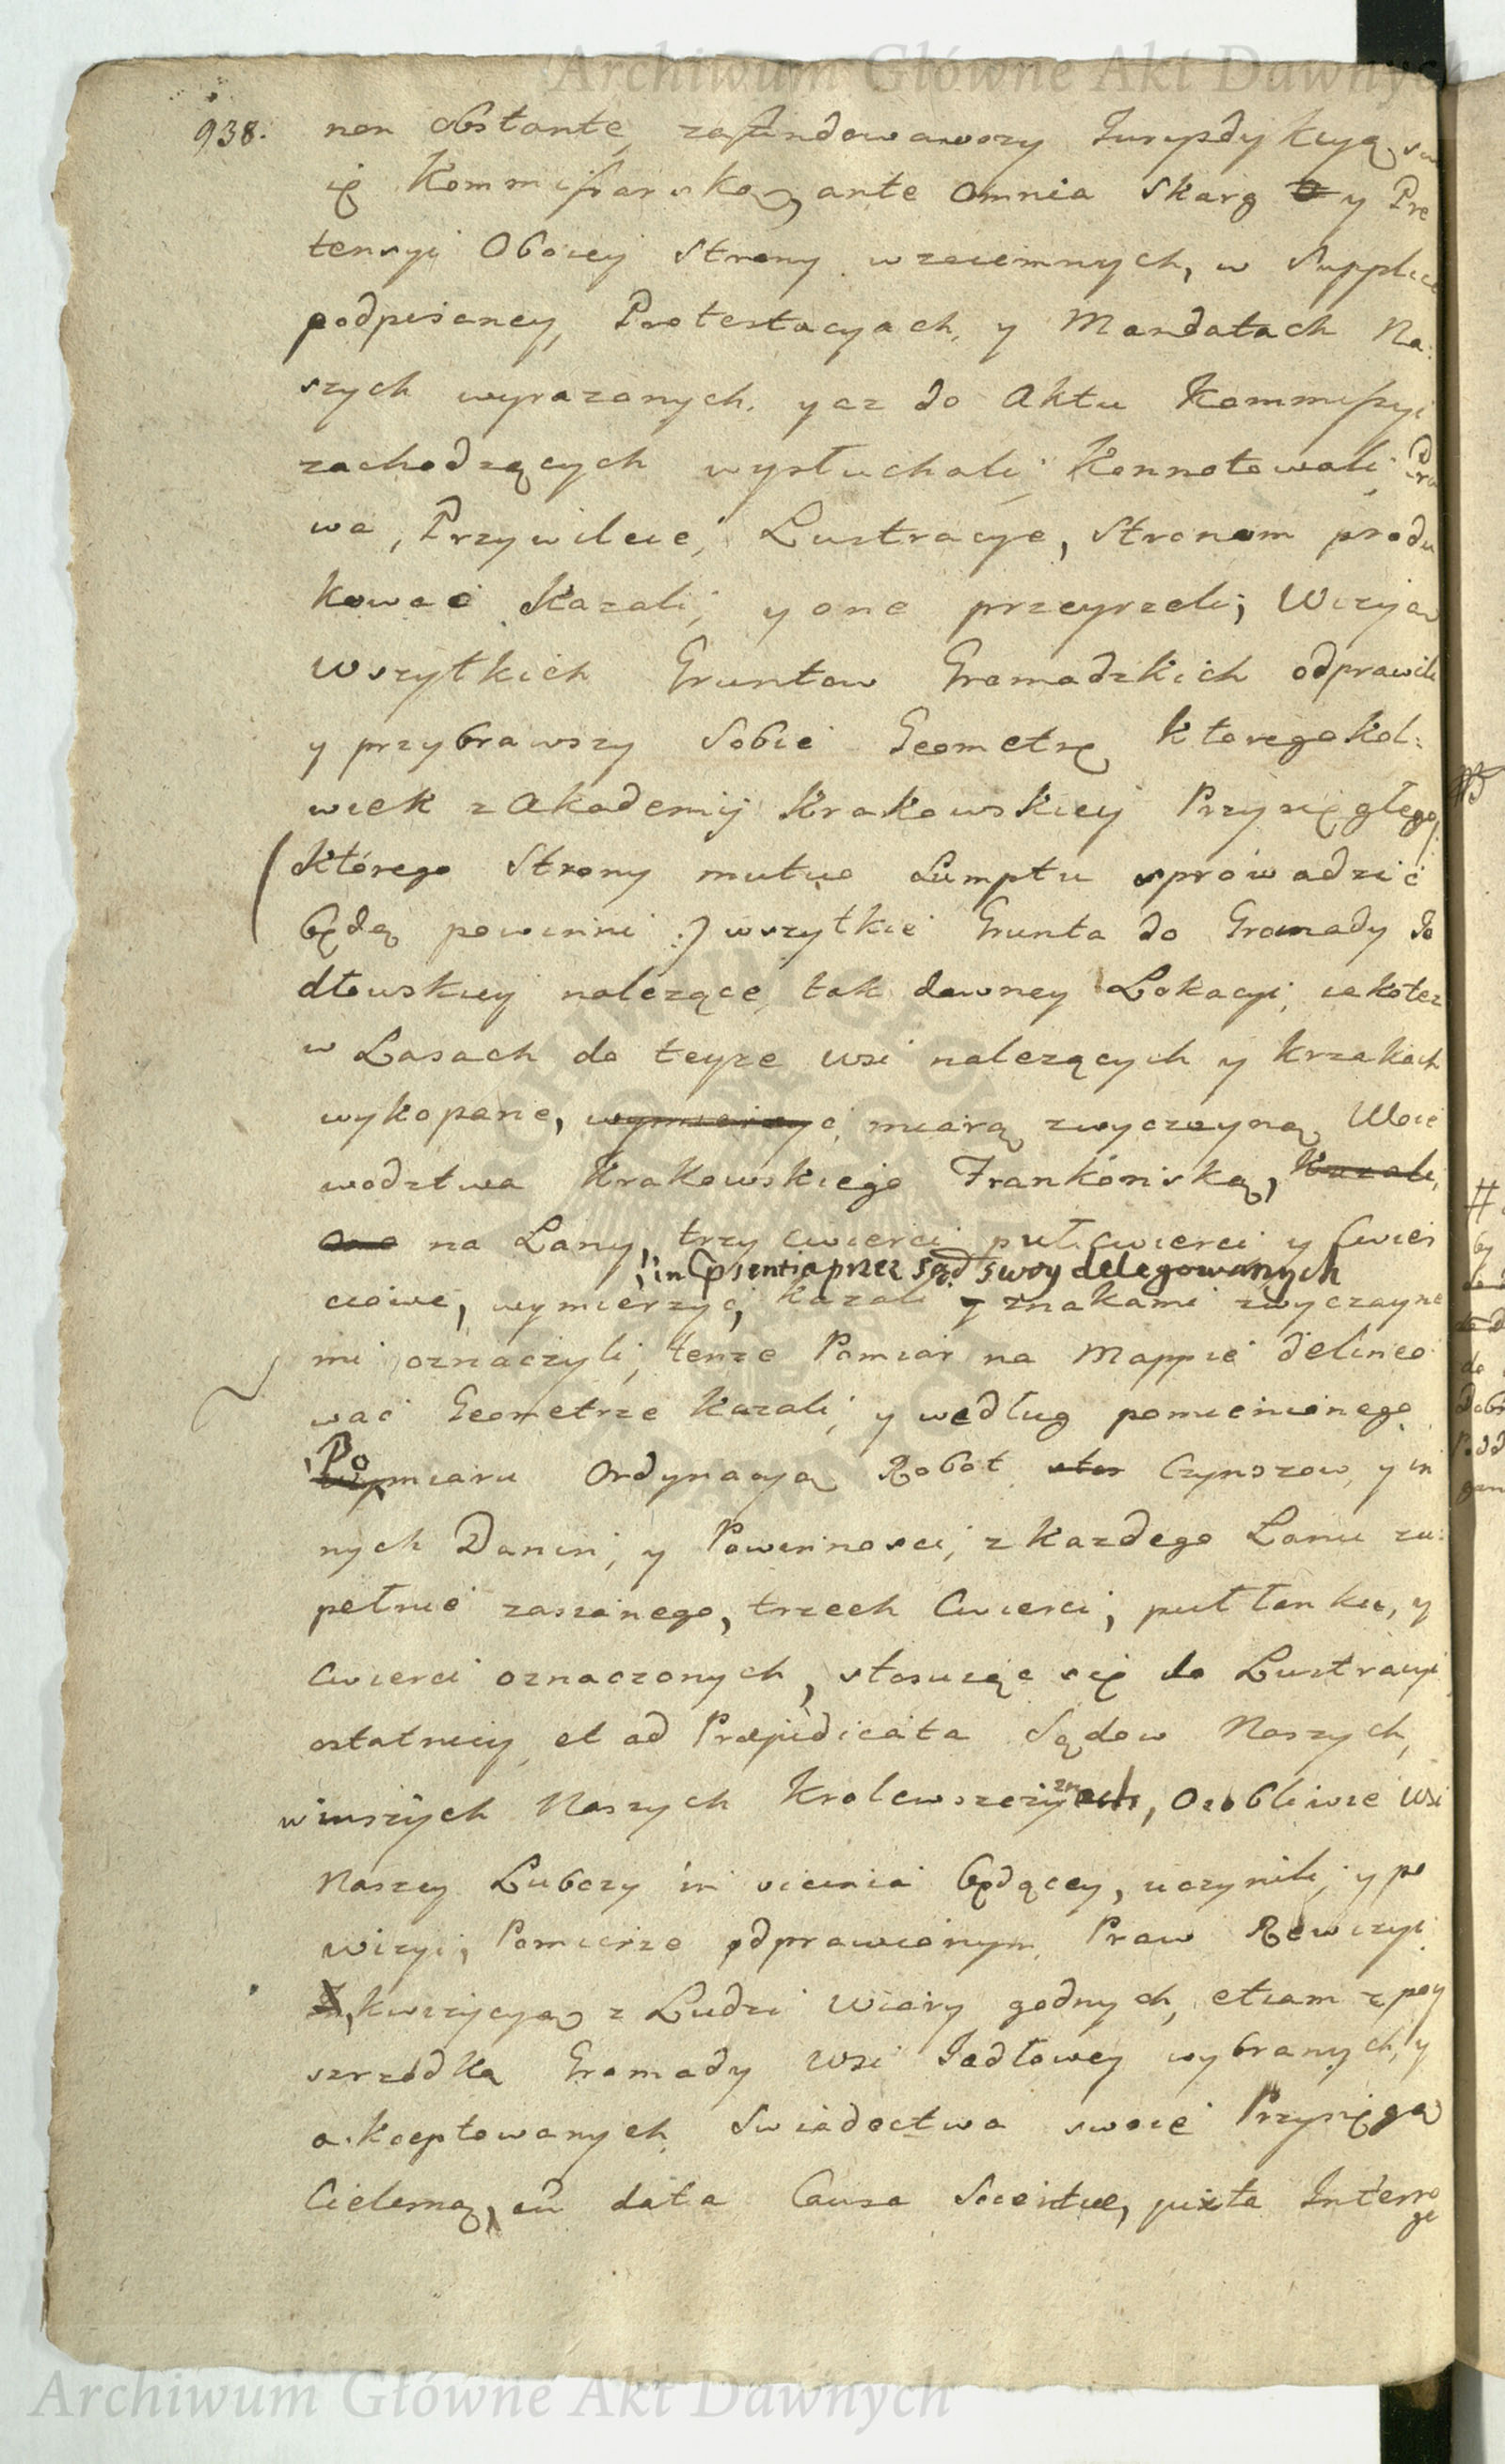 Archiwum Główne Akt Dawnych
938. non obstante, zafundowawszy Juryzdykcyą sw
ię Kommissarską, ante omnia Skarg y Pre
tensyi Oboiey Strony wzaiemnych, w Supplice
podpisaney, Protestacyach, y Mandatach Na:
szych wyrazonych, y az do Aktu Kommissyi
zachodzących wysłuchali, Konnotowali, Pra
wa, Przywileie, Lustracye, Stronom produ
kować Kazali, y one przeyrzeli; Wizyą
wszytkich Gruntow Gromadzkich odprawili
y przybrawszy Sobie Geometrę ktoregokol:
wiek z Akademij Krakowskiey Przysięgłego
(którego Strony mutuo Sumptu sprowadzić
będą powinni :) wszytkie Grunta do Gromady Ja
dłowskiey nalezące, tak dawney Lokacyi, iakotez
w Lasach do teyze wsi nalezących y krzakach
wykopane, wymierzyć miarą zwyczayną Woie
wodztwa Krakowskiego Frankońską, Kazali,
one na Lany, trzy cwierci, pułcwierci y Cwier
in Psentia przez Sąd swoy delegowanych
ciowe, wymierzyć, kazali y znakami zwyczayne
mi oznaczyli, tenze Pomiar na Mappie delineo
wać Geometrze kazali, y według pomienionego
Po
wymiaru Ordynacyą Robot, Czynszow, y in
nych Danin, y Powinnosci, z kazdego Lanu zu:
pełnie zasianego, trzech Cwierci, puł łanku, y
Cwierci oznaczonych, stosuiąc się do Lustracyi
ostatniey, et ad Præjudicata Sądow Naszych,
w inszych Naszych Krolewszczyznach, Osobliwie Wsi
Naszey Lubczy in vicinia będącey, uczynili, y po
wizyi, Pomiarze odprawionym, Praw Rewizyi
Inkwizycyą z Ludzi wiary godnych, etiam z poy
szrzodka Gromady wsi Jadłowey wybranych, y
akceptowanych Swiadectwa swoie Przysięgą
Cielesną, cū data Causa Scientiæ, juxta Interro
ga
Archiwum Główne Akt Dawnych